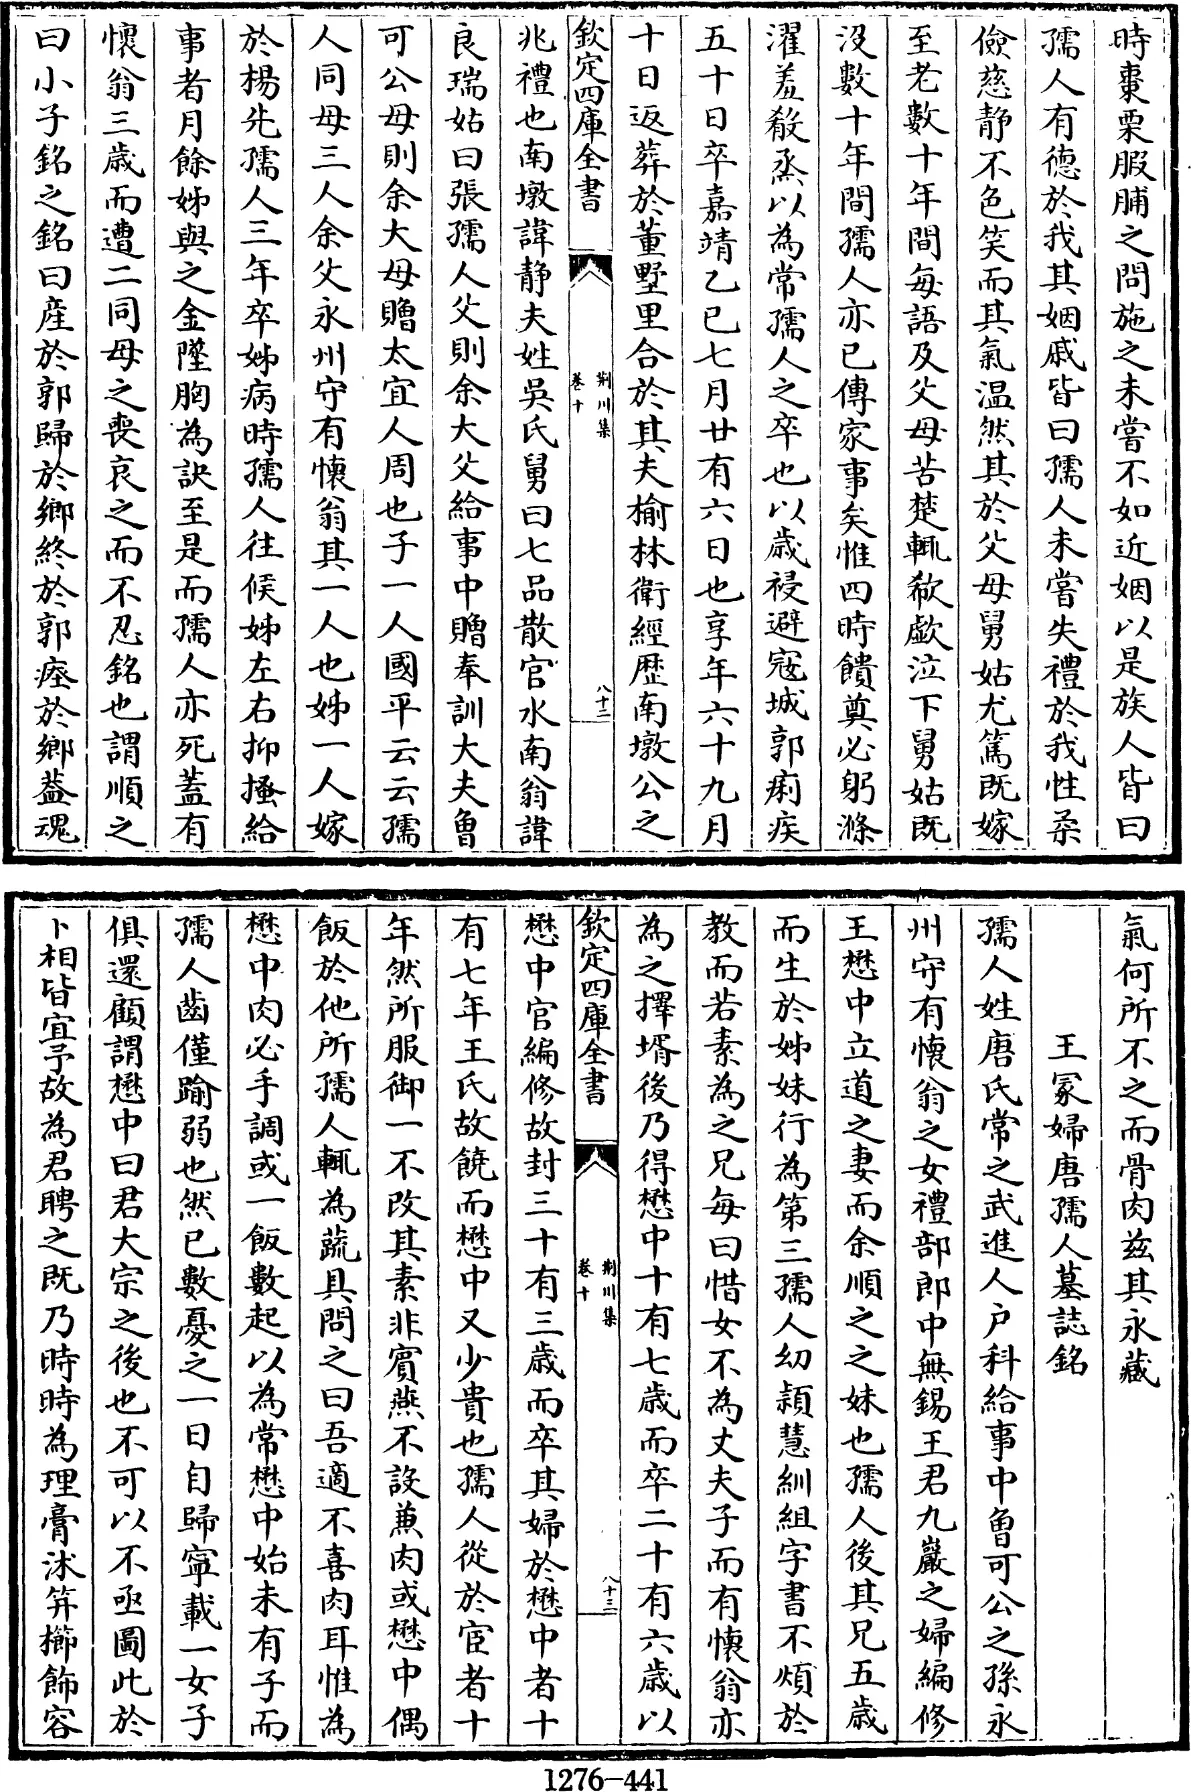 時棗栗腶脯之問施之未嘗不如近姻以是族人皆曰
孺人有德於我其姻戚皆曰孺人未嘗失禮於我性柔
儉慈静不色笑而其氣温然其於父母舅姑尤篤既嫁
至老數十年間每語及父母苦楚輒欷歔泣下舅姑既
沒數十年間孺人亦已傳家事矣惟四時饋奠必躬滌
濯羞殽烝以為常孺人之卒也以歲祲避寇城郭痢疾
五十日卒嘉靖乙巳七月廿有六日也享年六十九月
十日返葬於董墅里合於其夫榆林衛經歷南墩公之
欽定四庫全書
荆川集
卷十
八十二
兆禮也南墩諱静夫姓吳氏舅曰七品散官水南翁諱
良瑞姑曰張孺人父則余大父給事中贈奉訓大夫魯
可公母則余大母贈太宜人周也子一人國平云云孺
人同母三人余父永州守有懷翁其一人也姊一人嫁
於楊先孺人三年卒姊病時孺人往候姊左右抑搔給
事者月餘姊與之金墜胸為訣至是而孺人亦死蓋有
懷翁三歲而遭二同母之喪哀之而不忍銘也謂順之
曰小子銘之銘曰産於郭歸於鄉終於郭瘞於鄉葢魂
氣何所不之而骨肉兹其永藏
王冢婦唐孺人墓誌銘
孺人姓唐氏常之武進人户科給事中魯可公之孫永
州守有懷翁之女禮部郎中無錫王君九巖之婦編修
王懋中立道之妻而余順之之妹也孺人後其兄五歲
而生於姊妹行為第三孺人幼頴慧紃組字書不煩於
教而若素為之兄每曰惜女不為丈夫子而有懷翁亦
為之擇壻後乃得懋中十有七歲而卒二十有六歲以
欽定四庫全書
荆川集
卷十
八十三
懋中官編修故封三十有三歲而卒其婦於懋中者十
有七年王氏故饒而懋中又少貴也孺人從於宦者十
年然所服御一不改其素非賓燕不設兼肉或懋中偶
飯於他所孺人輒為蔬具問之曰吾適不喜肉耳惟為
懋中肉必手調或一飯數起以為常懋中始未有子而
孺人齒僅踰弱也然已數憂之一日自歸寧載一女子
俱還顧謂懋中曰君大宗之後也不可以不亟圖此於
卜相皆宜予故為君聘之既乃時時為理膏沐笄櫛飾容
1276—441